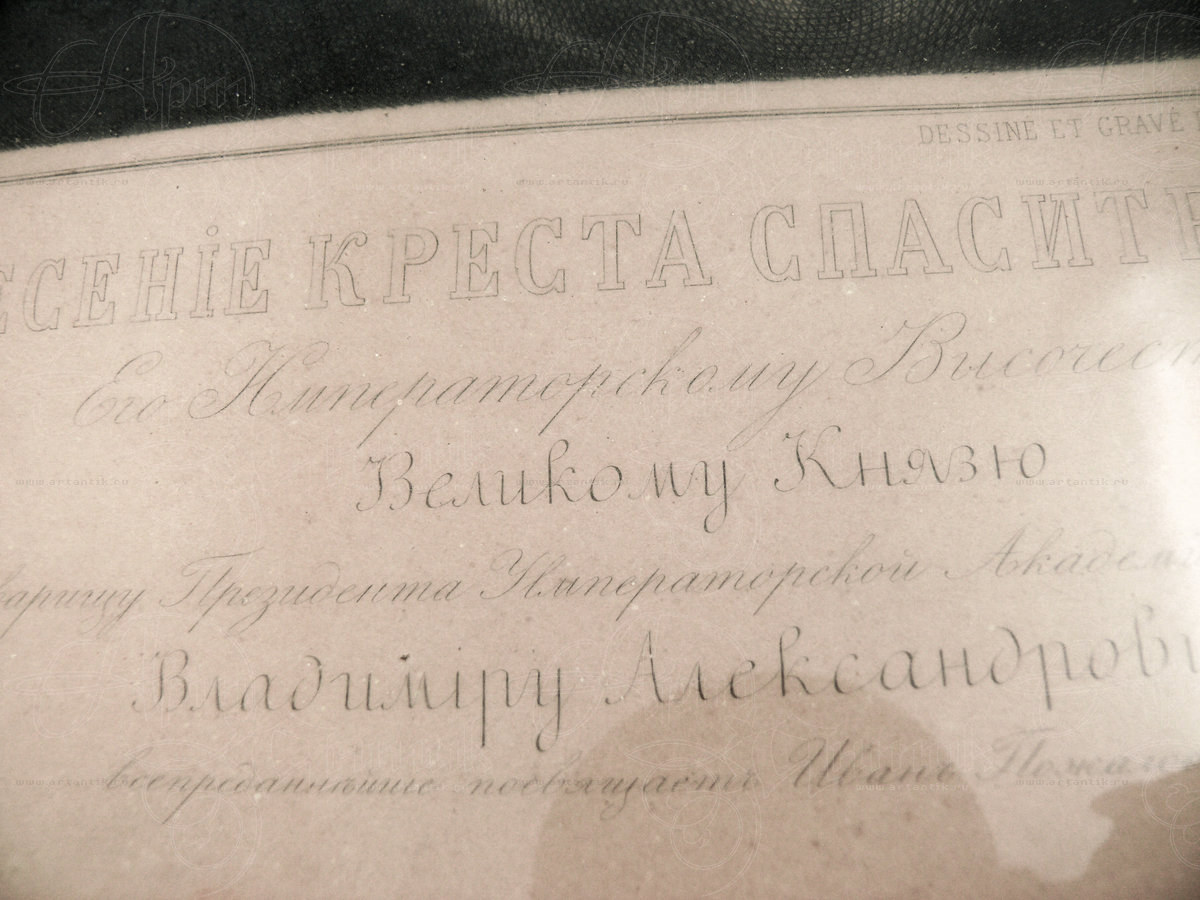 DESSINE ET GRAVÉ
ЕСЕНІЕ КРЕСТА СПАСИТЕ
Его Императорскому Высочес
Великому Князю
варищу Президента Императорской Академі
Владиміру Александрови
всепреданнѣйше посвящаетъ Иванъ Пожалос